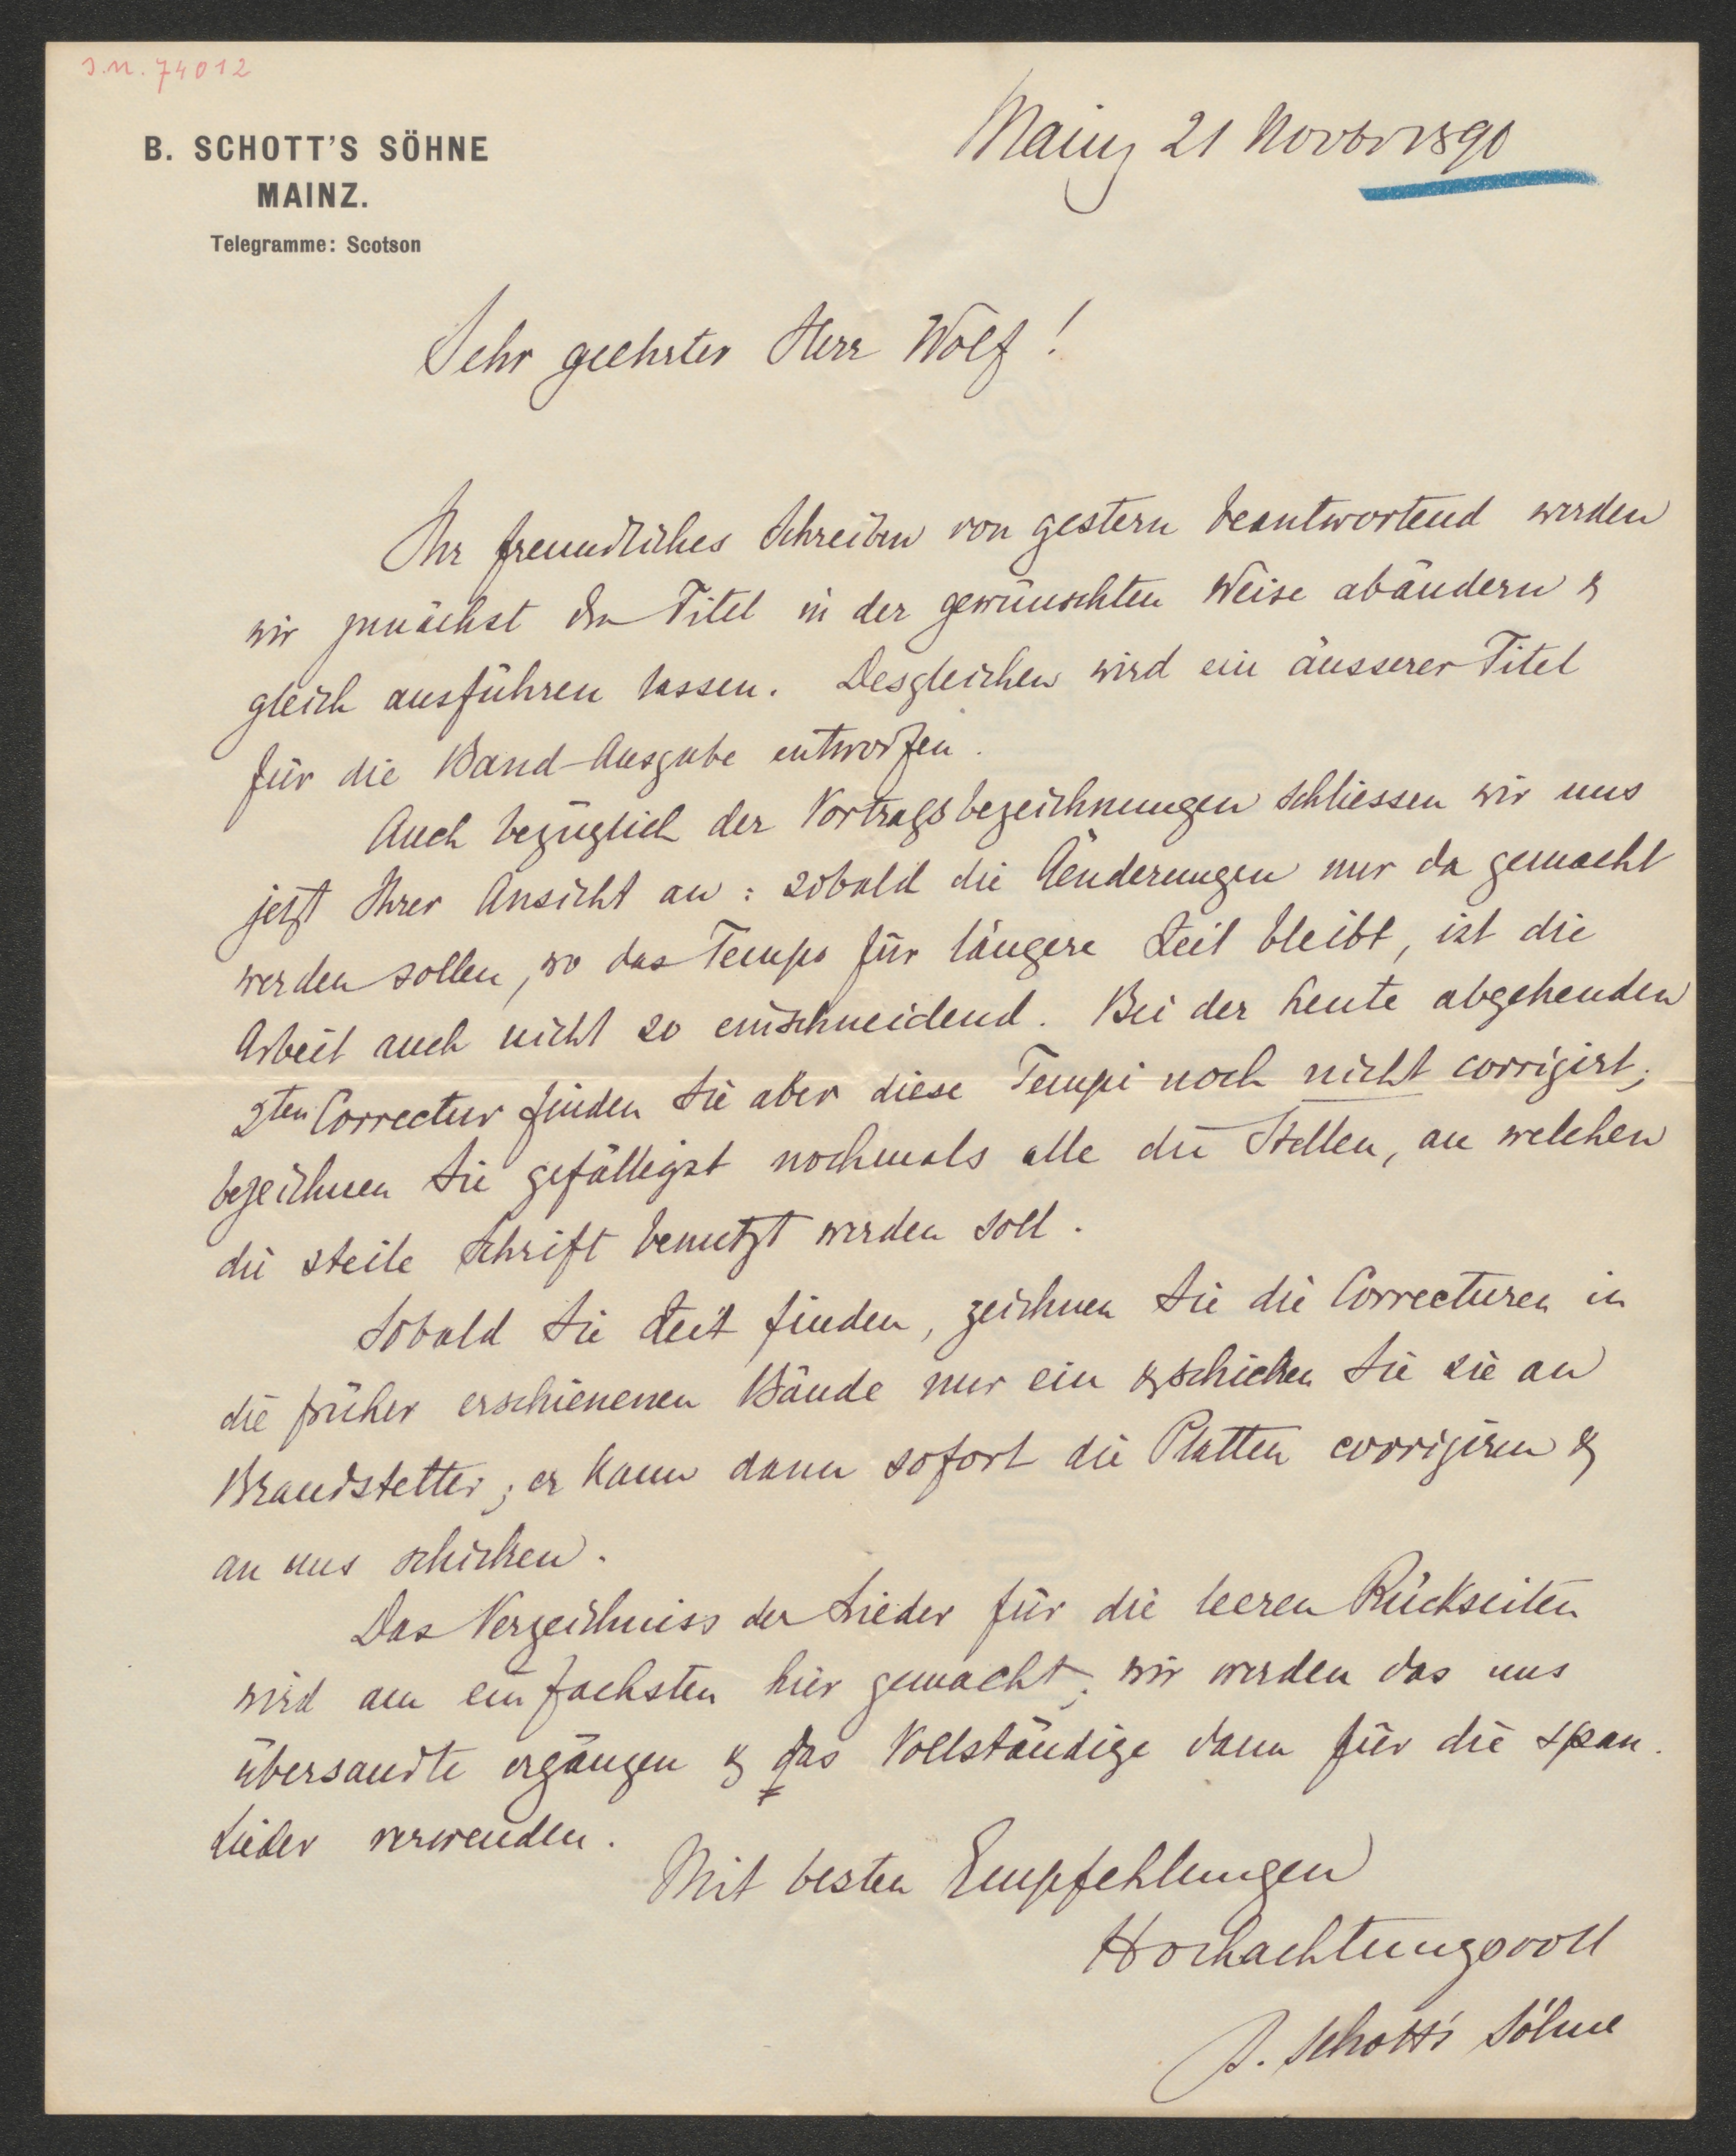 J.N. 74012
B. SCHOTT'S SÖHNE
MAINZ.
Telegramme: Scotson
Mainz 21 Novbr 1890
Sehr geehrter Herr Wolf!
Ihr freundliches Schreiben von gestern beantwortend werden
wir zunächst den Titel in der gewünschten Weise abändern &
gleich ausführen lassen. Desgleichen wird ein äusserer Titel
für die Band-Ausgabe entworfen.
Auch bezüglich der Vortragsbezeichnungen schliessen wir uns
jetzt Ihrer Ansicht an: sobald die Aenderungen nur da gemacht
werden sollen, wo das Tempo für längere Zeit bleibt, ist die
Arbeit auch nicht so einschneidend. Bei der heute abgehenden
2ten Correctur finden Sie aber diese Tempi noch nicht corrigirt;
bezeichnen Sie gefälligst nochmals alle die Stellen, an welchen
die steile Schrift benutzt werden soll.
Sobald Sie Zeit finden, zeichnen Sie die Correcturen in
die früher erschienenen Bände nur ein & schicken Sie sie an
Brandstetter; er kann dann sofort die Platten corrigiren &
an uns schicken.
Das Verzeichniss der Lieder für die leeren Rückseiten
wird am einfachsten hier gemacht; wir werden das uns
übersandte ergänzen & das Vollständige dann für die span.
Lieder verwenden.
Mit besten Empfehlungen
Hochachtungsvoll
B. Schott's Söhne